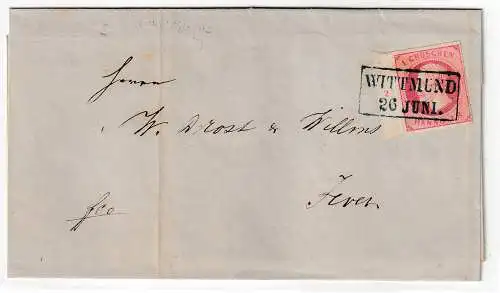 1 GROSCHEN
HANN
WITTMUND
26 JUNI.
Herrn
W. Drost & Willms
fco
Jever